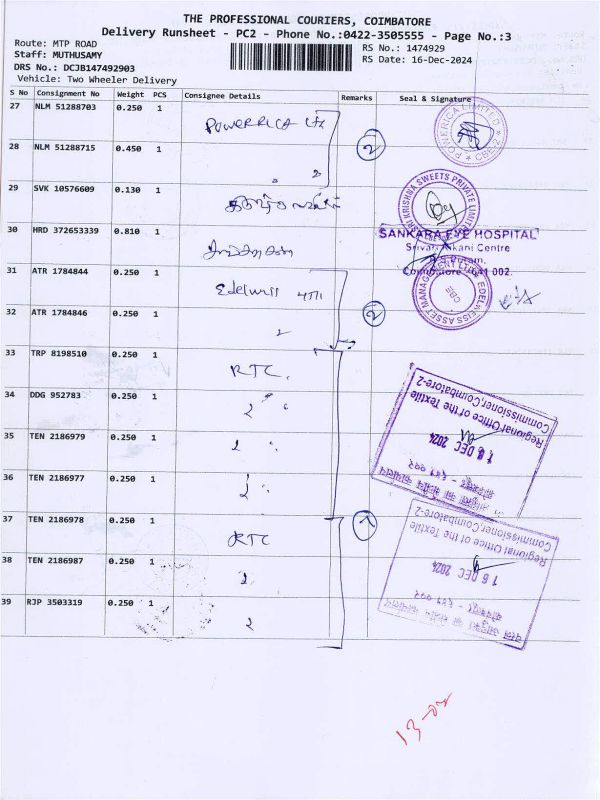 THE PROFESSIONAL COURIERS, COIMBATORE
Delivery Runsheet - PC2 - Phone No.:0422-3505555 - Page No.:3
Route: MTP ROAD
RS No.: 1474929
Staff: MUTHUSAMY
RS Date: 16-Dec-2024
DRS No.: DCJB147492903
Vehicle: Two Wheeler Delivery
S No Consignment No Weight PCS Consignee Details Remarks Seal & Signature
27 NLM 51288703 0.250 1 POWERICA Ltd
POWERICA LIMITED CBE-2
28 NLM 51288715 0.450 1 2
29 SVK 10576609 0.130 1
SRI KRISHNA SWEETS PRIVATE LIMITED
30 HRD 372653339 0.810 1
SANKARA EYE HOSPITAL
Coimbatore - 641 002.
31 ATR 1784844 0.250 1 Edelwiss
EDELWEISS ASSET MANAGEMENT LTD CBE
32 ATR 1784846 0.250 1 2
33 TRP 8198510 0.250 1 RTC.
34 DDG 952783 0.250 1 2 "
35 TEN 2186979 0.250 1 2 "
36 TEN 2186977 0.250 1 2 "
Regional Office of the Textile
Commissioner,Coimbatore-2
16 DEC 2024
37 TEN 2186978 0.250 1 RTC
38 TEN 2186987 0.250 1 2
39 RJP 3503319 0.250 1 2
Regional Office of the Textile
Commissioner,Coimbatore-2
16 DEC 2024